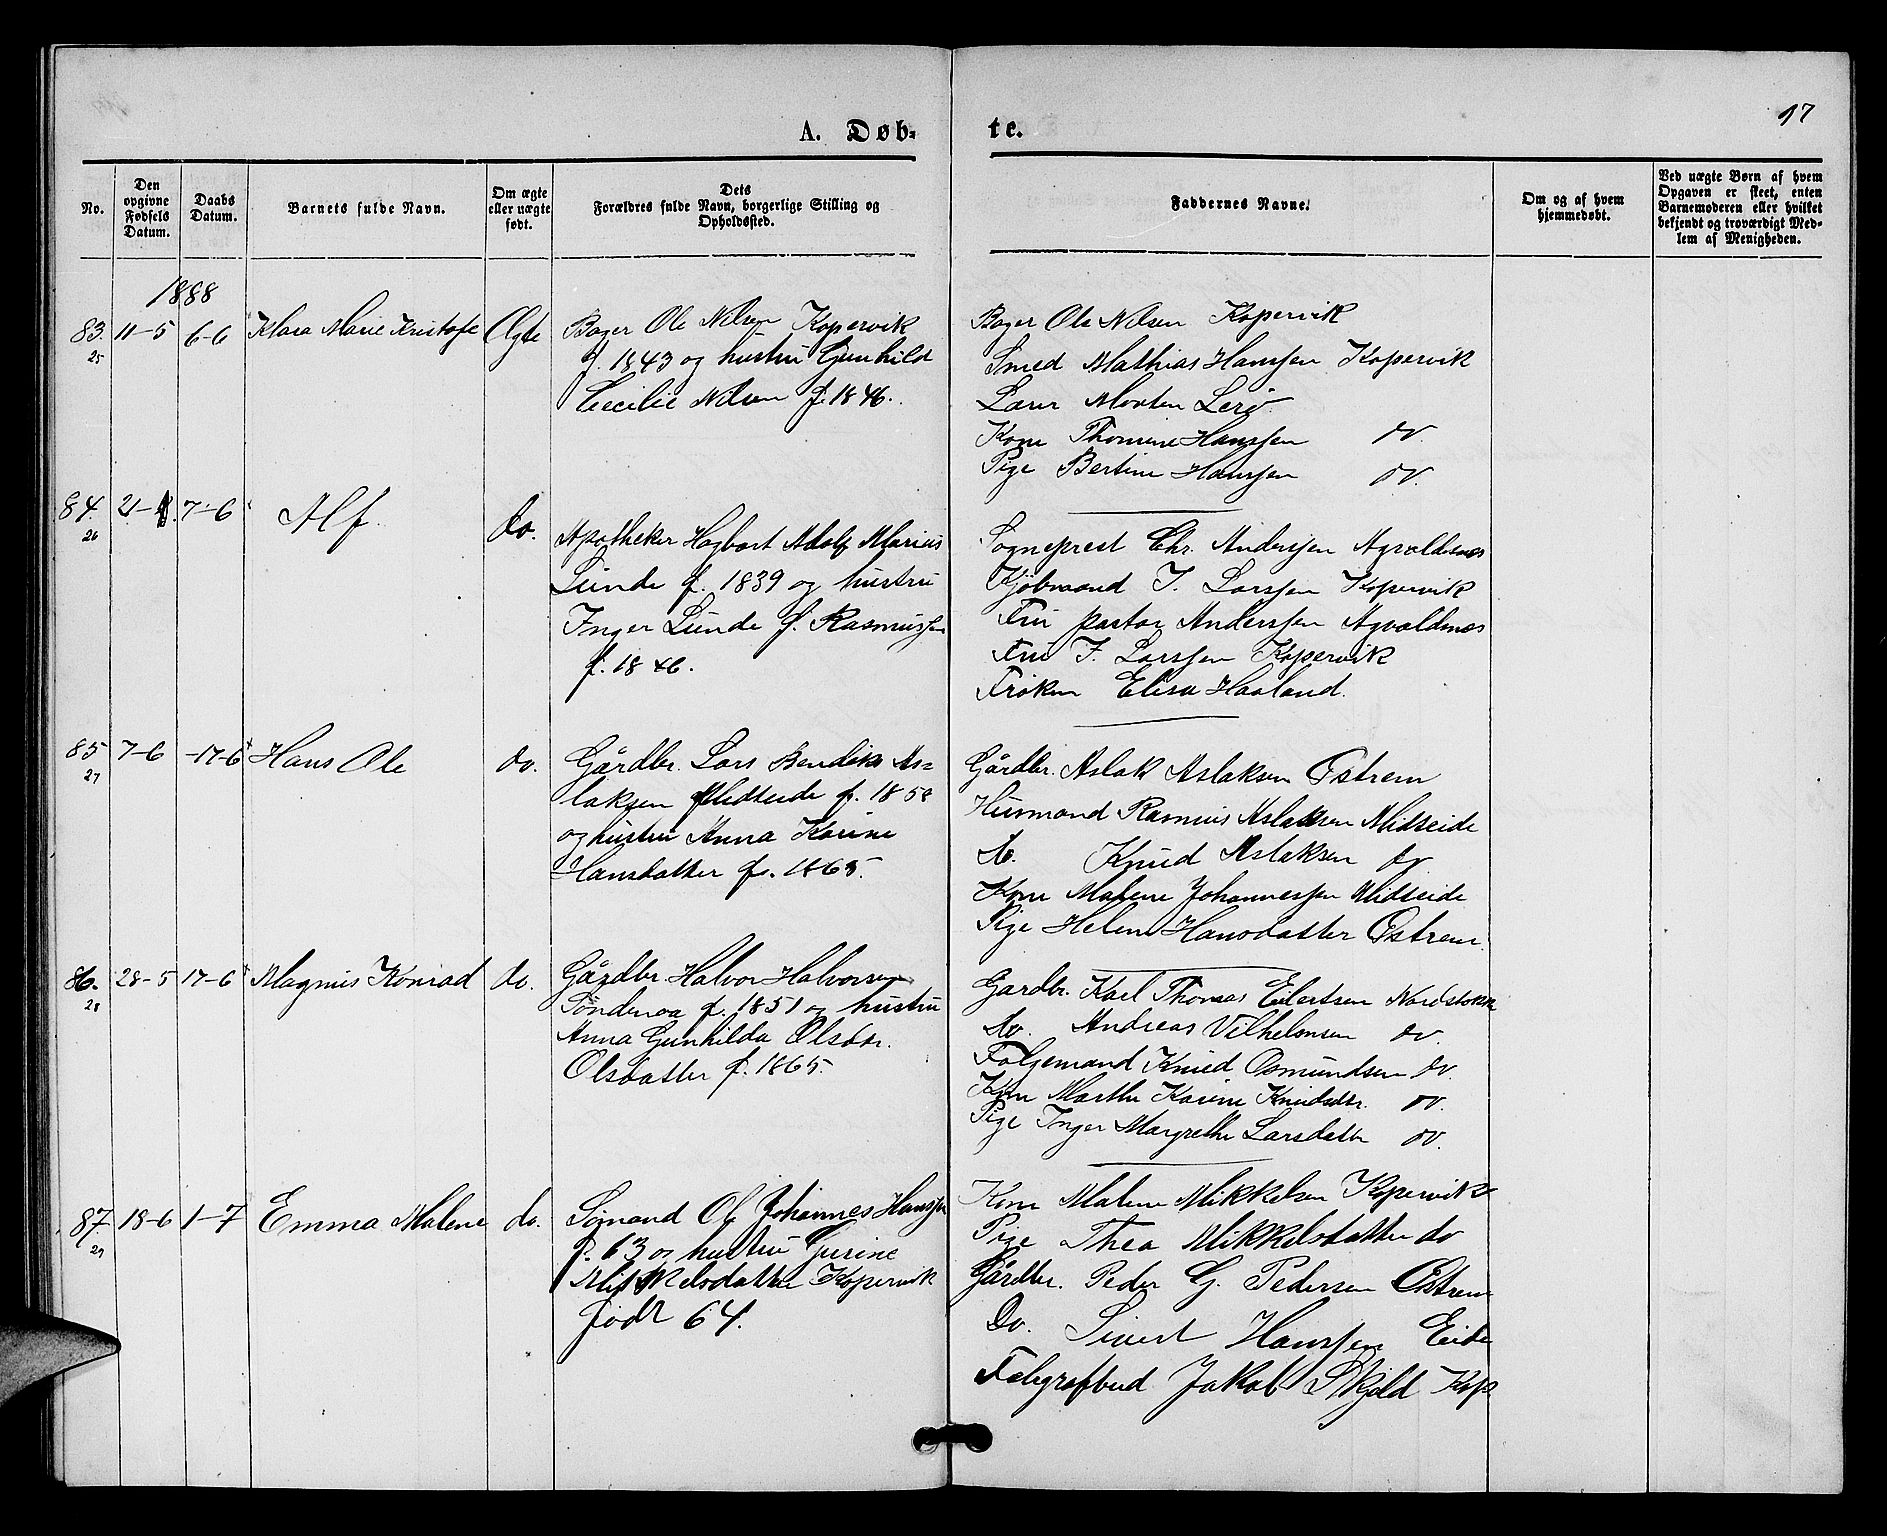 17
A. Døb-
te.
No.
Den
opgivne
Fødsels
Datum.
Daabs
Datum.
Barnets fulde Navn.
Om ægte
eller uægte
født.
Dets
Forældres fulde Navn, borgerlige Stilling og
Opholdssted.
Faddernes Navne.
Om og af hvem
hjemmedøbt.
Ved uægte Børn af hvem
Opgaven er skeet, enten
Barnemoderen eller hvilket
bekjendt og troværdigt Med-
lem af Menigheden.
1888
83.
25
11-5
6-6
Klara Marie Kristofe
Ægte
Bager Ole Nilsen Kopervik
f. 1843 og hustru Gunhild
Cecilie Nilsen f. 1846.
Bager Ole Nilsen Kopervik
Smed Mathias Hanssen Kopervik
Morten Lerö
Kone Thomine Hanssen do.
Pige Bertine Hanssen do.
84.
26
7-6
Alf.
do.
Apotheker Hagbart Adolf Marius
Lunde f. 1839 og hustru
Inger Lunde f. Rasmussen
f. 1846.
Sogneprest Chr. Anderssen Agvaldsnes
Kjöbmand J. Larssen Kopervik
Fru pastor Anderssen Agvaldsnes
Fru J. Larssen Kopervik
Fröken Elisa Haaland.
85
27
7-6
17-6
Hans Ole
do.
Gårdbr. Lars Bendik As-
laksen Midteide f. 1858
og hustru Anna Karine
Hansdatter f. 1865.
Gårdbr. Aslak Aslaksen Østrem
Husmand Rasmus Aslaksen Midteide
do. Knud Aslaksen do
Kone Malene Johannessen Midteide
Pige Helene Hansdatter Østrem.
86.
28
28-5
17-6
Magnus Konrad
do.
Gårdbr. Halvor Halvorsen
f. 1851 og hustru
Anna Gunhilda Olsdtr.
Olsdatter f. 1865.
Gardbr. Karl Thomas Eilertsen Nordstokke
do. Andreas Vilhelmsen do.
Følgemand Knud Osmundsen do.
Kone Marthe Karine Knudsdtr. do.
Pige Inger Margrethe Larsdatter do.
87.
29
18-6
1-7
Emma Malene
do.
Sömand Ole Johannes Hanssen
f. 63 og hustru Gurine
Mikkelsdatter Kopervik
født 64.
Kone Malene Mikkelsen Kopervik
Pige Thea Mikkelsdatter do
Gårdbr. Peder G. Pedersen Østrem
Do. Sivert Hanssen Eide
Telegrafbud Jakob Skjold Kop.